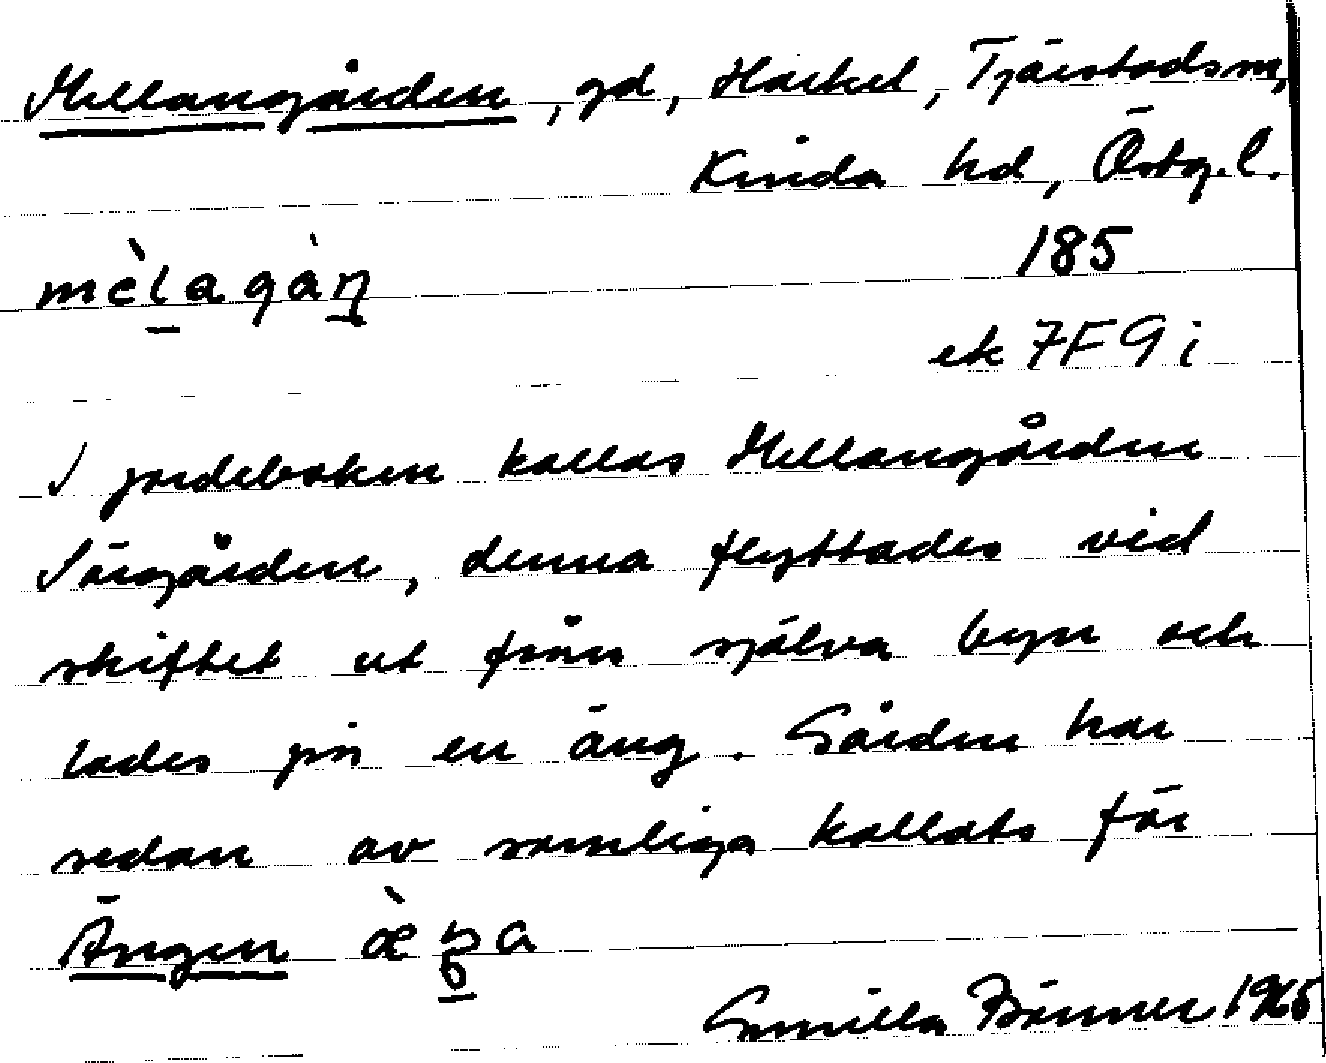 Mellangården, gd, Harkel, Tjärstadsm,
Kinda hd, Östg.l.
mèlagàn
185
ek 7F9i
I jordeboken kallas Mellangården
Sörgården, denna flyttades vid
skiftet ut från själva byn och
lades på en äng. Gården har
sedan av somliga kallats för
Ängen
Gunilla 1965